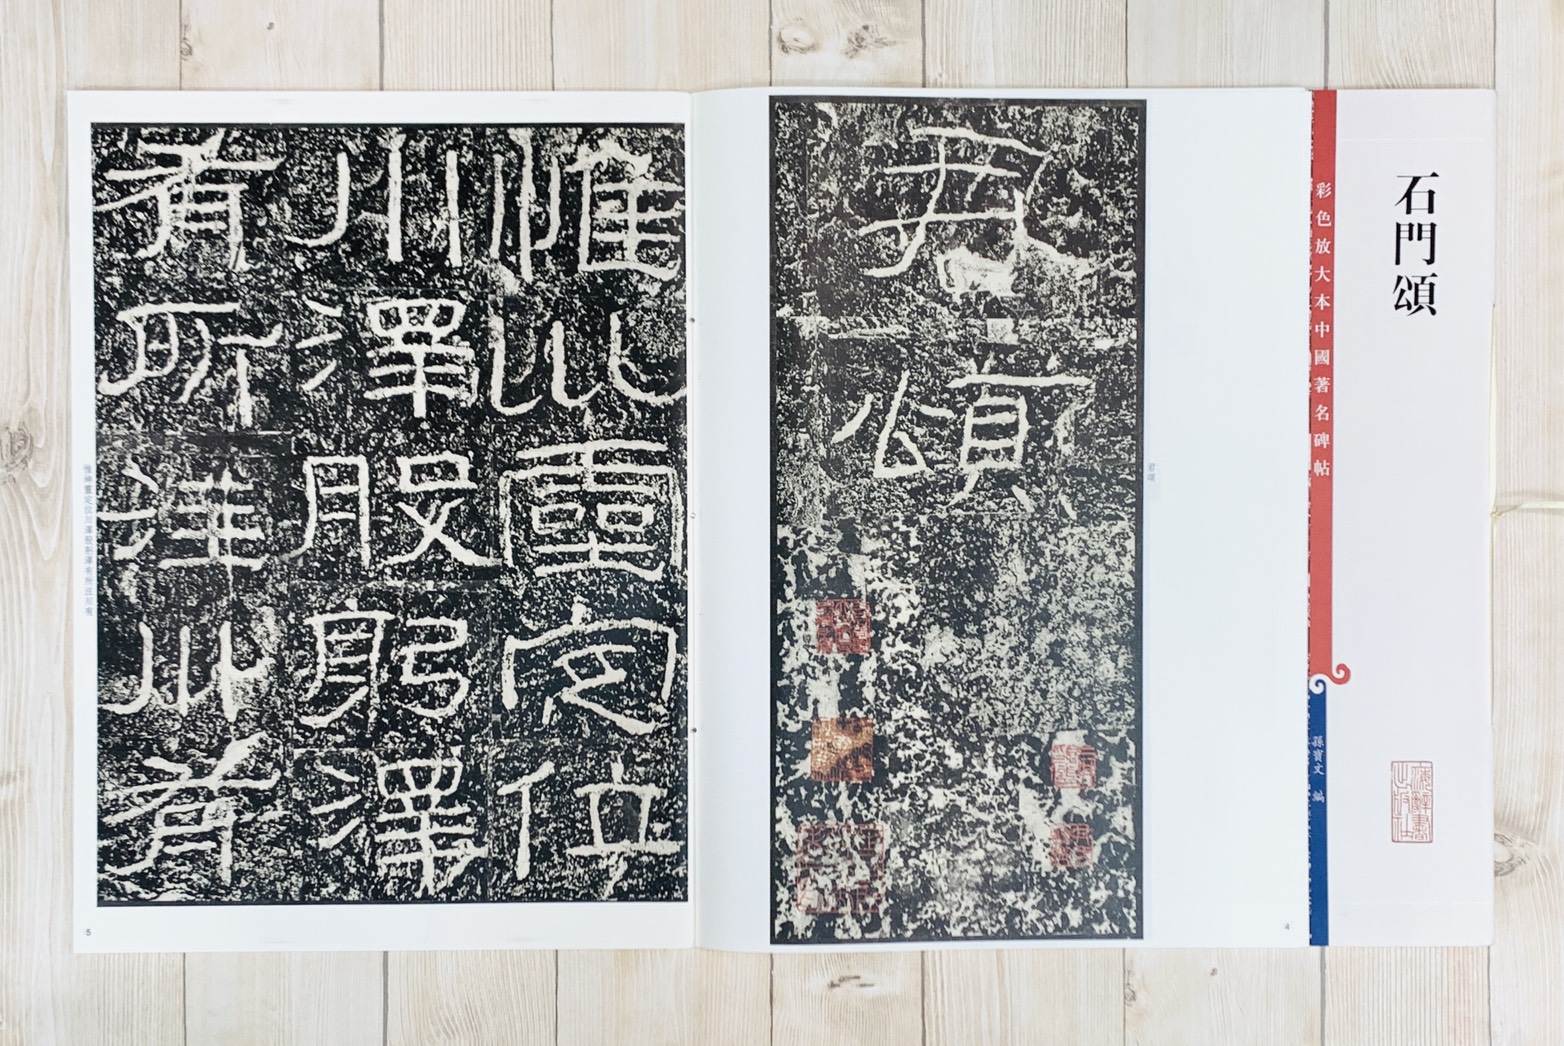 石門頌
彩色放大本中國著名碑帖
孫寶文 編
君頌
君頌
4
惟坤靈定位
川澤股躬澤
有所注川有
5